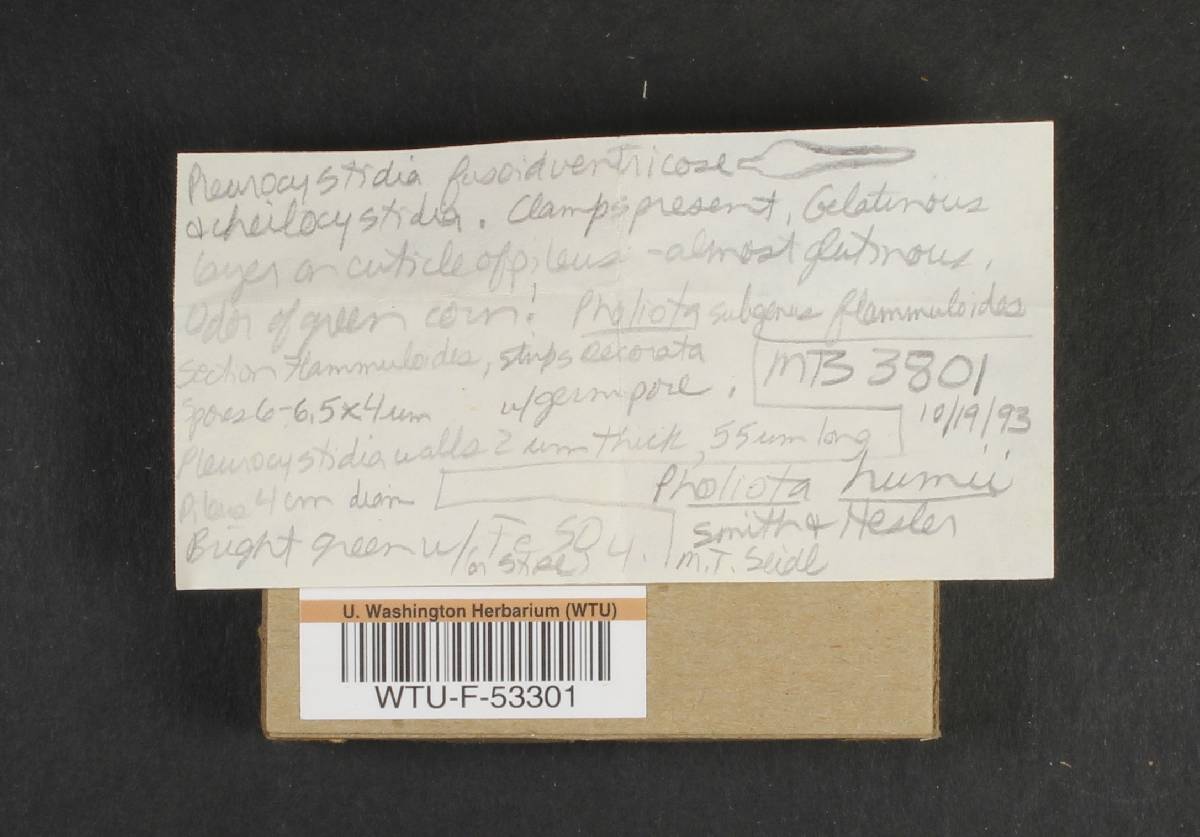 Pleurocystidia fusoidventricose
& cheilocystidia. Clamps present, Gelatinous
layer on cuticle of pileus - almost glutinous.
Odor of green corn! Pholiota subgenus flammuloides
section flammuloides, stirps decorata
spores 6-6.5x4 um w/germ pore.
MTS 3801
10/19/93
Pleurocystidia walls 2 um thick, 55 um long
Pileus 4 cm diam
Pholiota humii
Smith & Hesler
Bright green w/ Fe SO4.
on stipe
M.T. Seidl
U. Washington Herbarium (WTU)
WTU-F-53301